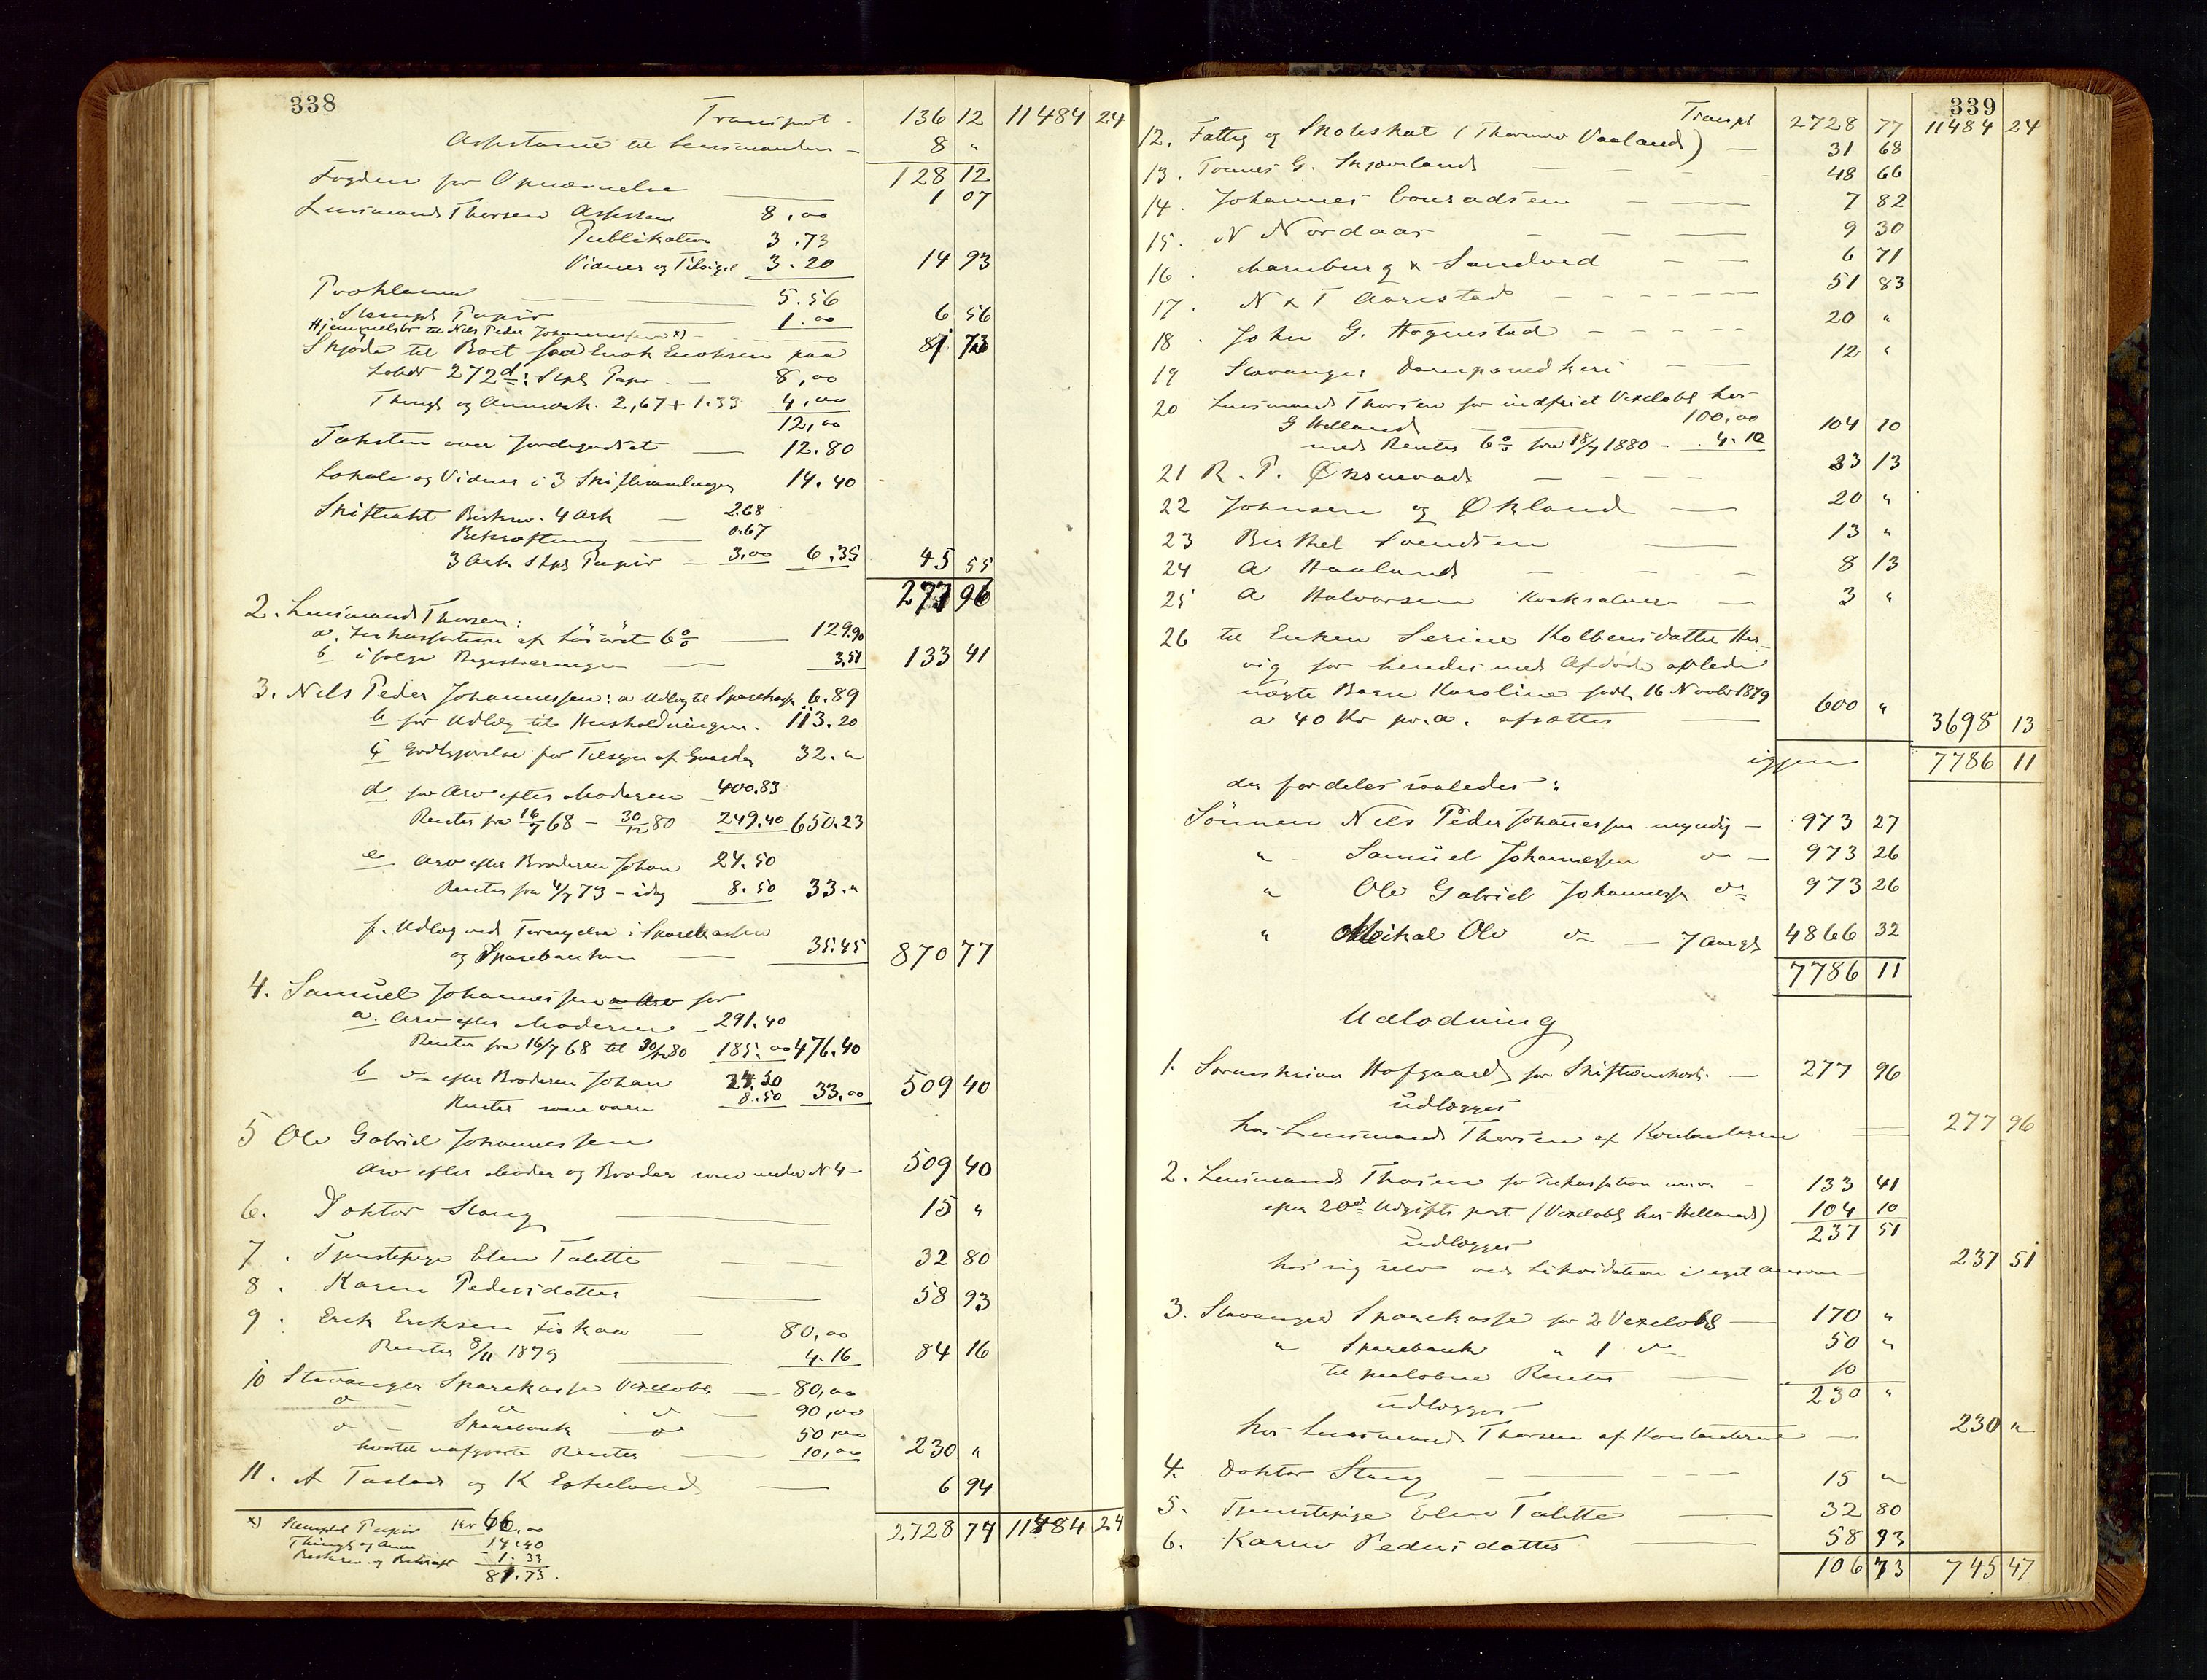 338
Transport - 136 12 11484 24
Assistance til Lensmanden - 8 "
128 12
Fogden for Opnævnelse 1 07
Lensmand Thorsen Assistance 8,00
Publikation 3.73
Vidner og Tilsigel 3.20 14 93
Proklama 5.56
Stempl Papir 1.00 6 56
Hjemmelsbr til Nils Peder Johannessen x) 81 73
Skjøde til Boet fra Enok Enoksen paa
Lobnr 272d: Stpl Papir - 8,00
Thingl og Annværk. 2,67 + 1.33 4,00
12,00
Taksten over Jordegodset 12.80
Lokale og Vidner i 3 Skiftesamlinger 14.40
Skifteakt Beskriv. 4 Ark 2.68
Bekræftning 0.67
3 Ark Stpl Papir - 3,00 6.35 45 55
277 96
2. Lensmand Thorsen:
a. Inkassation af Løsøret 6% 129.90
b ifølge Registreringen 3,51 133 41
3. Nils Peder Johannessen: a Udlæg til Sparekasse 6.89
b for Udlæg til Husholdningen. 113.20
c Godtgjørelse for Tilsyn af Gaarden 32."
d for Arv efter Moderen - 400.83
Renter fra 16/7 68 - 30/12 80 249.40 650.23
e Arv efter Broderen Johan 24.50
Renter fra 4/7 73 - idag 8.50 33."
f. Udlæg ved Fornyelse i Sparekassen
og Sparebanken 35.45 870 77
4. Samuel Johannessen a Arv for
a. Arv efter Moderen - 291.40
Renter fra 16/7 68 til 30/12 80 185.00 476.40
b do efter Broderen Johan 24.50
Renter som oven 8.50 33,00 509 40
5 Ole Gabriel Johannessen
Arv efter Moder og Broder som under N 4 - 509 40
6. Doktor Stang 15 "
7. Tjenestepige Elen Talette 32 80
8. Karen Pedersdatter 58 93
9. Erik Eriksen Fiskaa - 80,00
Renter 8/11 1879 4.16 84 16
10 Stavanger Sparekasse Vexelobl - 80,00
do do do - 90,00
do - Sparebank do 50,00
hvortil uafgjorte Renter 10,00 230 "
11. A Tarlad og K Eskeland 6 94
2728 77 11484 24
x) Stempl Papir Kr 66,00
Thingl og Annv 14.40
Beskriv. og Bekræft 1.33
81.73.
339
Transpt 2728 77 11484 24
12. Fattig og Skoleskat (Thormo Vaaland) - 31 68
13. Tonnes G. Skjæveland 48 66
14. Johannes Conradsen 7 82
15. N Nordaas 9 30
16. Marnburg & Sandved 6 71
17. N & T Aarestad 51 83
18. John G. Hognestad 20 "
19 Stavanger Dampsnedkeri 12 "
20 Lensmand Thorsen for indfriet Vexelobl hos
G Helland 100,00
med Renter 6% fra 18/4 1880 - 4.10 104 10
21 R. T. Øksnevad 23 13
22 Johnsen og Økland 20 "
23 Berthel Svendsen 13 "
24 A Haaland 8 13
25 A Halvorsen Kvaksalver 3 "
26 til Enken Serine Kolbensdatter Her-
vig for hendes med Afdøde avlede
uægte Barn Karoline født 16 Novbr 1879
a 40 Kr pr. a. afsættes 600 " 3698 13
igjen 7786 11
der fordeles saaledes:
Sønnen Nils Peder Johannessen myndig - 973 27
" Samuel Johannessen do - 973 26
" Ole Gabriel Johannessen do 973 26
" Meikal Ole do - 7 Aar gl 4866 32
7786 11
Udlodning
1. Sorenskriver Hofgaard for Skifteomkost. - 277 96
udlægges
hos Lensmand Thorsen af Kontanterne 277 96
2. Lensmand Thorsen for Inkassation m.v. - 133 41
efter 20de Udgiftspost (Vexelobl hos Helland) 104 10
237 51
udlægges
hos sig selv ved Likvidation i eget Ansvar - 237 51
3. Stavanger Sparekasse for 2 Vexelobl - 170 "
" Sparebank " 1 do 50 "
til paaløbne Renter 10
230 "
udlægges
hos Lensmand Thorsen af Kontanterne - 230 "
4. Doktor Stang 15 "
5. Tjenestepige Elen Talette 32 80
6. Karen Pedersdatter 58 93
106 73 745 47